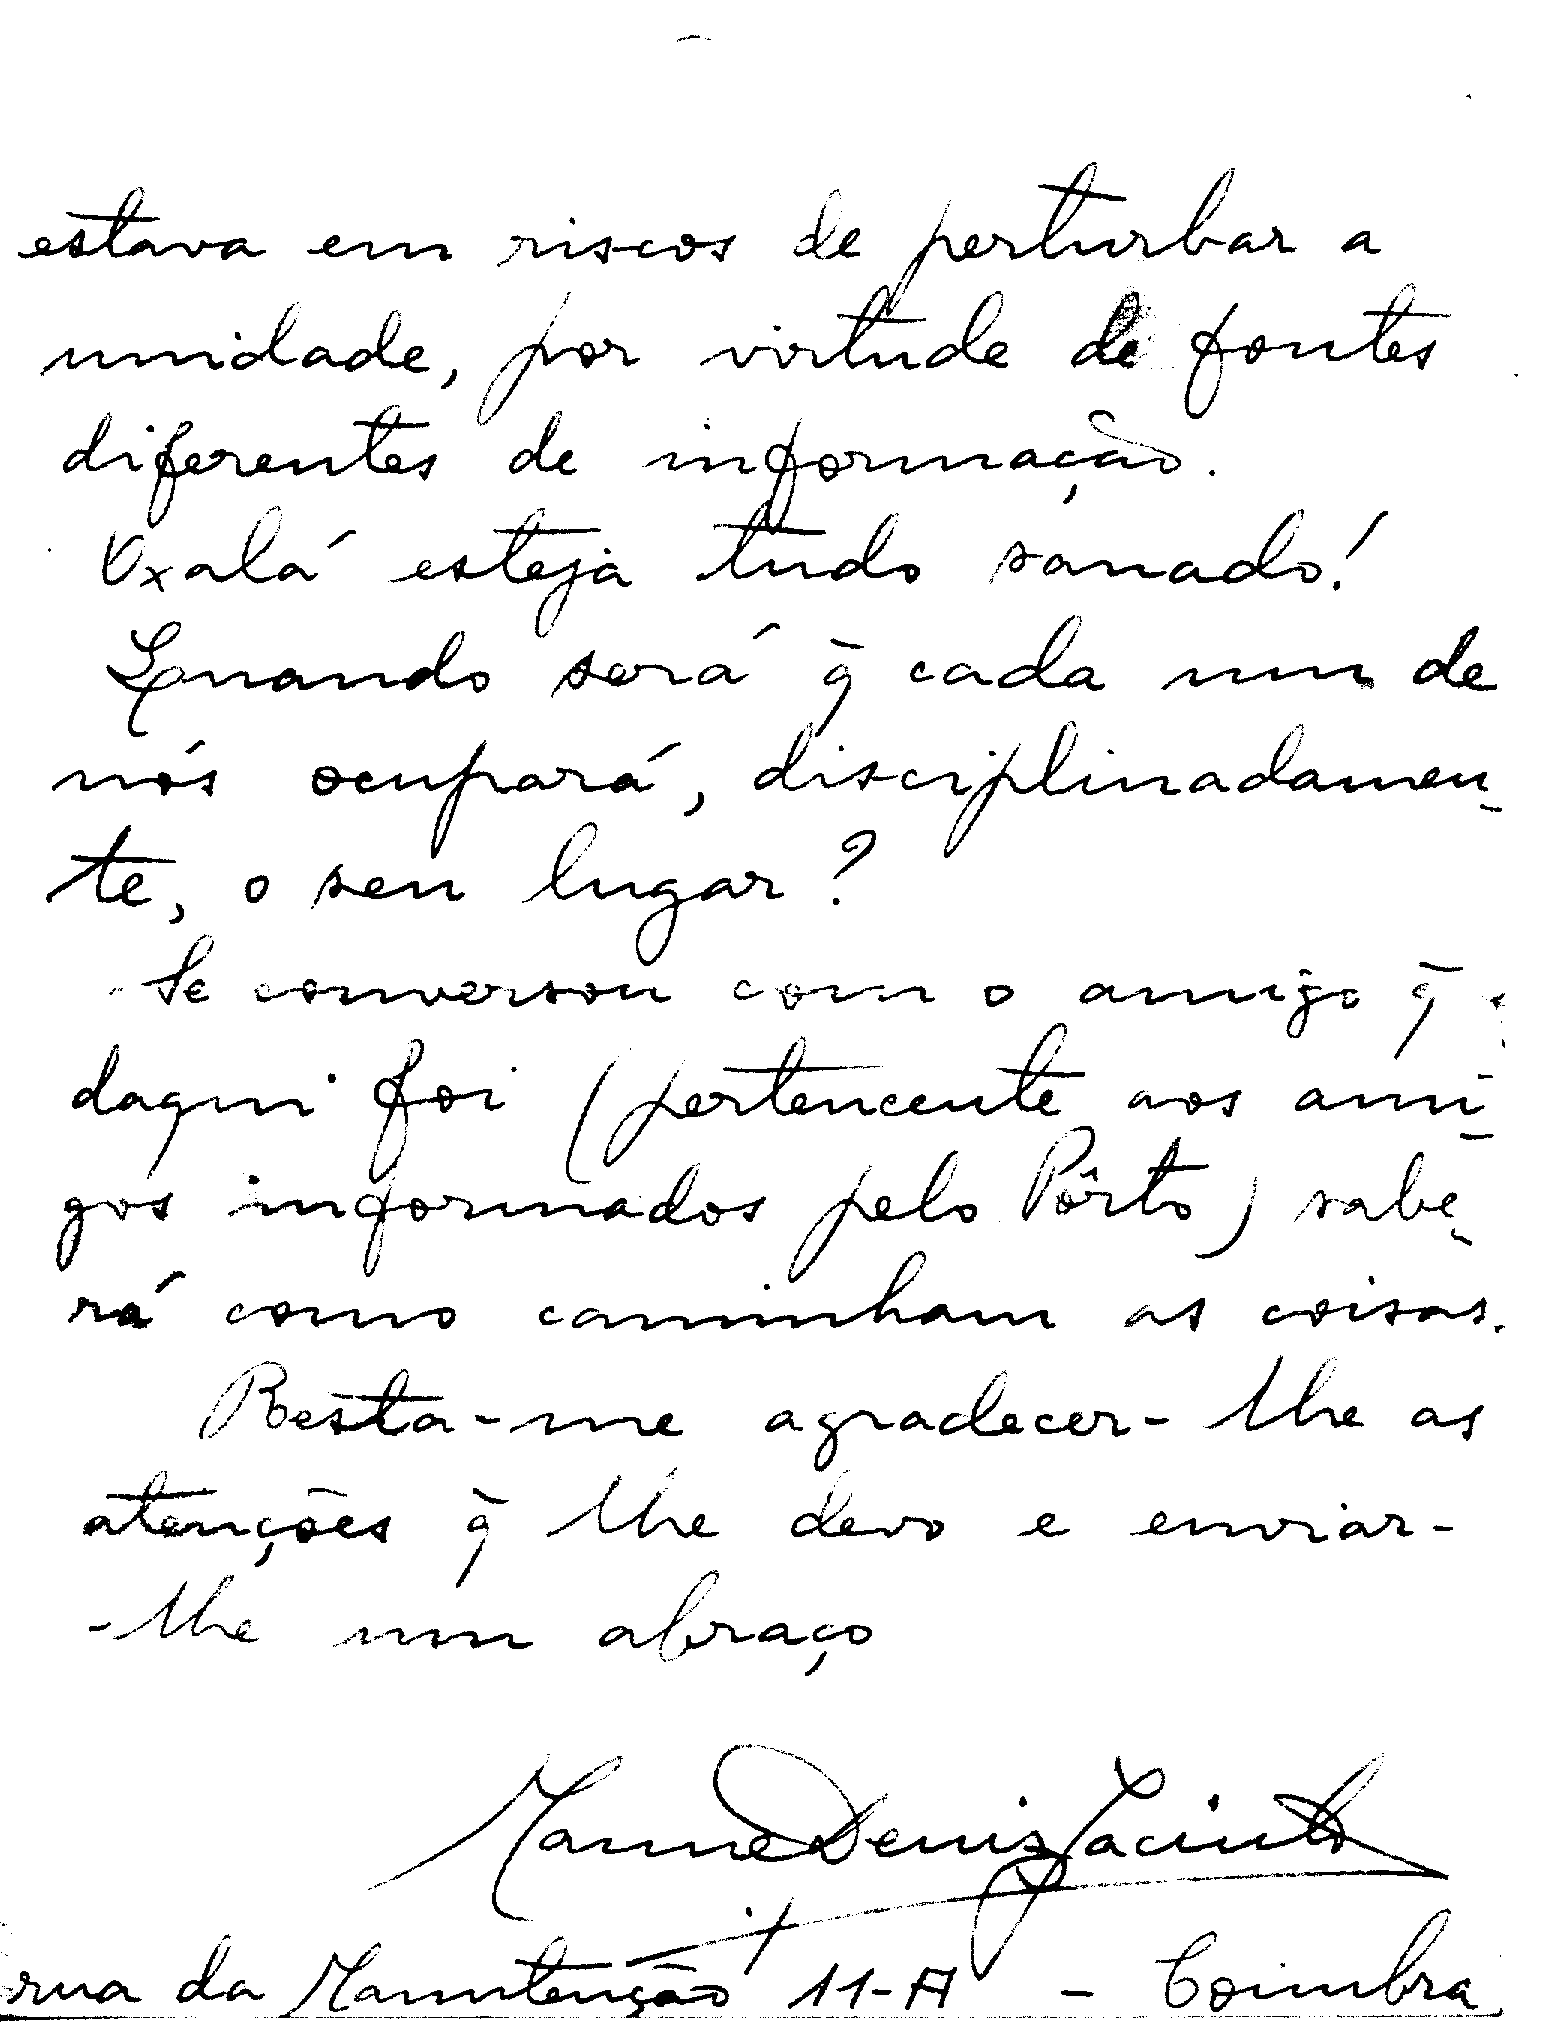 estava em riscos de perturbar a
unidade, por virtude de fontes
diferentes de informação.
Oxalá esteja tudo sanado!
Quando será q̄ cada um de
nós ocupará, disciplinadamen-
te, o seu lugar?
Se conversou com o amigo q̄
daqui foi (pertencente aos ami-
gos informados pelo Pôrto) sabe-
rá como caminham as coisas.
Resta-me agradecer-lhe as
atenções q̄ lhe devo e enviar-
-lhe um abraço
Deniz Jacinto
rua da Manutenção 11-A - Coimbra